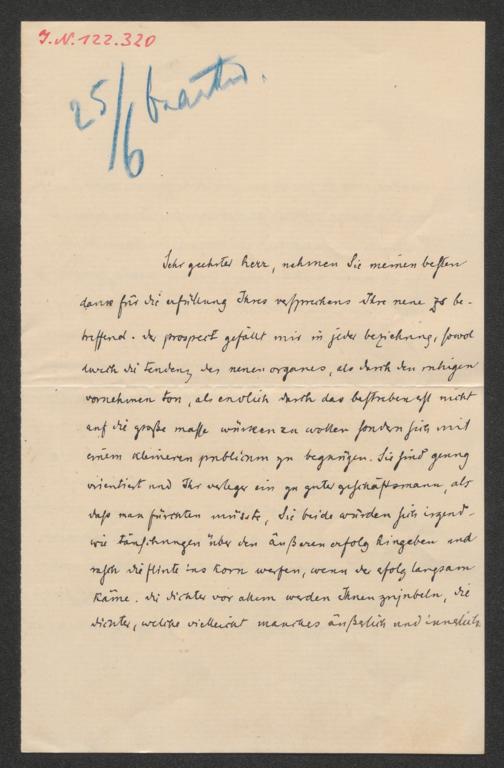 I.N. 122.320
25/6 beantw.
Sehr geehrter herr, nehmen Sie meinen besten
dank für die erfüllung Ihres versprechens Ihre neue zs be-
treffend. der prospect gefällt mir in jeder beziehung, sowol
durch die tendenz des neuen organes, als durch den ruhigen
vornehmen ton, als endlich durch das bestreben nicht
auf die große masse wirken zu wollen sondern sich mit
einem kleineren publicum zu begnügen. Sie sind genug
orientiert und Ihr verleger ein zu guter geschäftsmann, als
daß man fürchten müsste, Sie beide würden sich irgend-
wie täuschungen über den äußeren erfolg hingeben und
rasch die flinte ins korn werfen, wenn der erfolg langsam
käme. die dichter vor allem werden Ihnen zujubeln, die
dichter, welche vielleicht manches äußerlich und innerlich